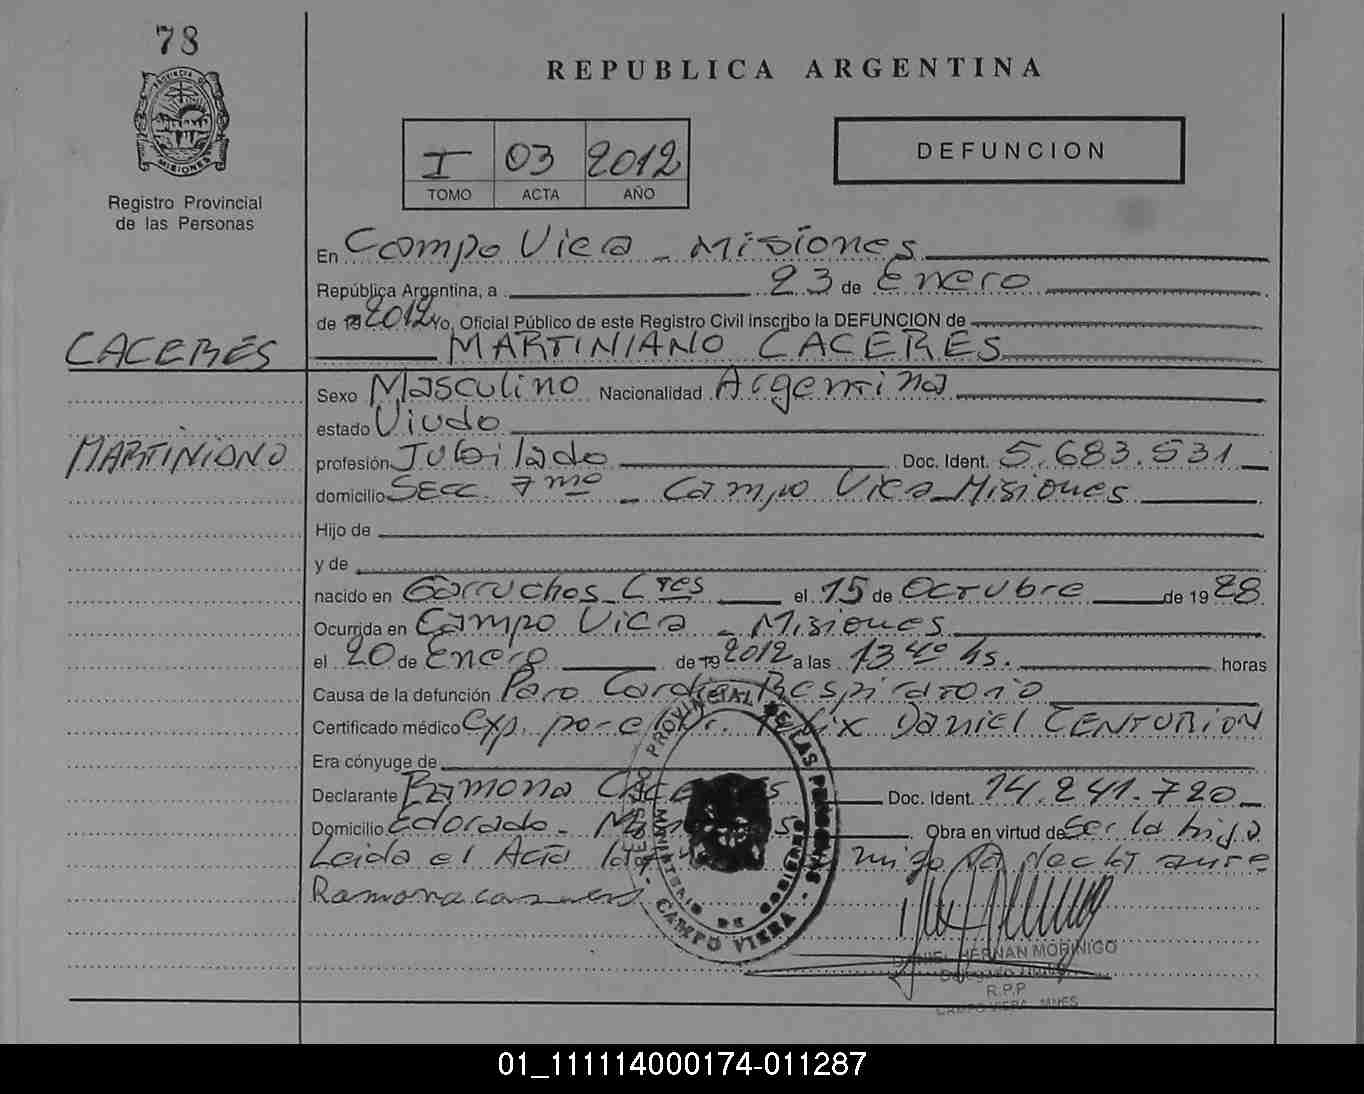 78
PROVINCIA DE
MISIONES
Registro Provincial
de las Personas
REPUBLICA ARGENTINA
I 03 2012
TOMO ACTA AÑO
DEFUNCION
En Campo Viera - Misiones
República Argentina, a 23 de Enero
de 19 2012 Yo, Oficial Público de este Registro Civil inscribo la DEFUNCION de
CACERES
MARTINIANO CACERES
Sexo Masculino Nacionalidad Argentina
estado Viudo
MARTINIANO
profesión Jubilado Doc. Ident. 5.683.531
domicilio Secc. 7ma - Campo Viera Misiones
Hijo de
y de
nacido en Garruchos Ctes el 15 de Octubre de 19 28
Ocurrida en Campo Viera - Misiones
el 20 de Enero de 19 2012 a las 13 40 hs. horas
Causa de la defunción Paro Cardio Respiratorio
Certificado médico Exp. por el Dr. Felix Daniel CENTURION
Era cónyuge de
Declarante Ramona Caceres Doc. Ident. 14.241.720
Domicilio Eldorado - Misiones Obra en virtud de Ser la hija
Leida el Acta la migo la declarante
Ramona caceres
REGISTRO PROVINCIAL DE LAS PERSONAS
MINISTERIO DE GOBIERNO
CAMPO VIERA
DANIEL HERNAN MORINIGO
Delegado
R.P.P
CAMPO VIERA - MNES
01_111114000174-011287